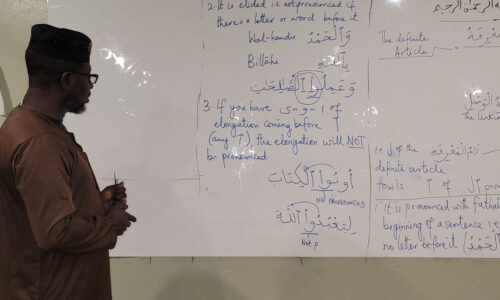 2. It is elided is not pronounced if
there is a letter or word before it
Wal-hamdu وَالْحَمْدُ
Billāhi بِاللَّهِ
وَعَمِلُوا الصَّالِحَاتِ
3. If you have ي - و - ا of
elongation coming before
(any ), the elongation will NOT
be pronounced.
أُوتُوا الْكِتَابَ
NOT PRONOUNCED
لِيَعْبُدُوا اللَّهَ
Not p
The definite
Article.
i.e ال of the لَامُ الْمَعْرِفَةِ
definite article
1. it is pronounced with fathah
beginning of a sentence i.e
no letter before it (الْحَمْدُ